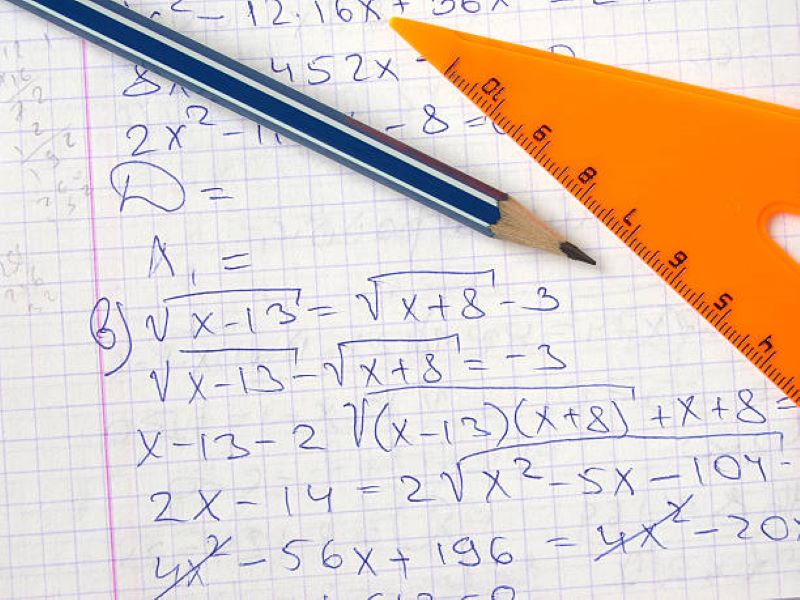 - 12.16x + 36x
8x 452x -
2x² - - 8 =
D =
x₁ =
в) √(x-13) = √(x+8) - 3
√(x-13) - √(x+8) = -3
x-13-2 √((x-13)(x+8)) + x+8 =
2x - 14 = 2√(x² - 5x - 104)
4x² - 56x + 196 = 4x² - 20x
10
9
8
7
6
5
4